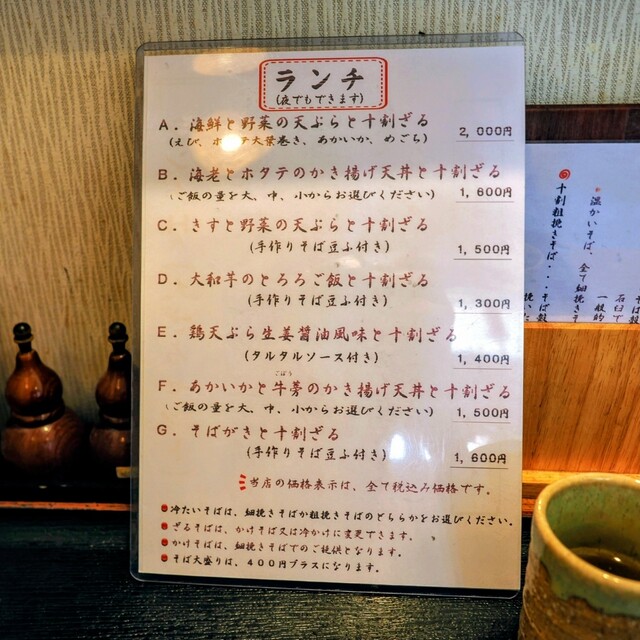 ランチ
(夜でもできます)
A. 海鮮と野菜の天ぷらと十割ざる
(えび、ホタテ大葉巻き、あかいか、めごち)
2,000円
B. 海老とホタテのかき揚げ天丼と十割ざる
(ご飯の量を大、中、小からお選びください)
1,600円
C. きすと野菜の天ぷらと十割ざる
(手作りそば豆ふ付き)
1,500円
D. 大和芋のとろろご飯と十割ざる
(手作りそば豆ふ付き)
1,300円
E. 鶏天ぷら生姜醤油風味と十割ざる
(タルタルソース付き)
1,400円
ごぼう
F. あかいかと牛蒡のかき揚げ天丼と十割ざる
(ご飯の量を大、中、小からお選びください)
1,500円
G. そばがきと十割ざる
(手作りそば豆ふ付き)
1,600円
当店の価格表示は、全て税込み価格です。
冷たいそばは、細挽きそばか粗挽きそばのどちらかをお選びください。
ざるそばは、かけそば又は冷かけに変更できます。
かけそばは、細挽きそばでのご提供となります。
そば大盛りは、400円プラスになります。
温かいそば、全て細挽きそ
十割粗挽きそば・・・そば殻
挽いた
石臼で
一般的